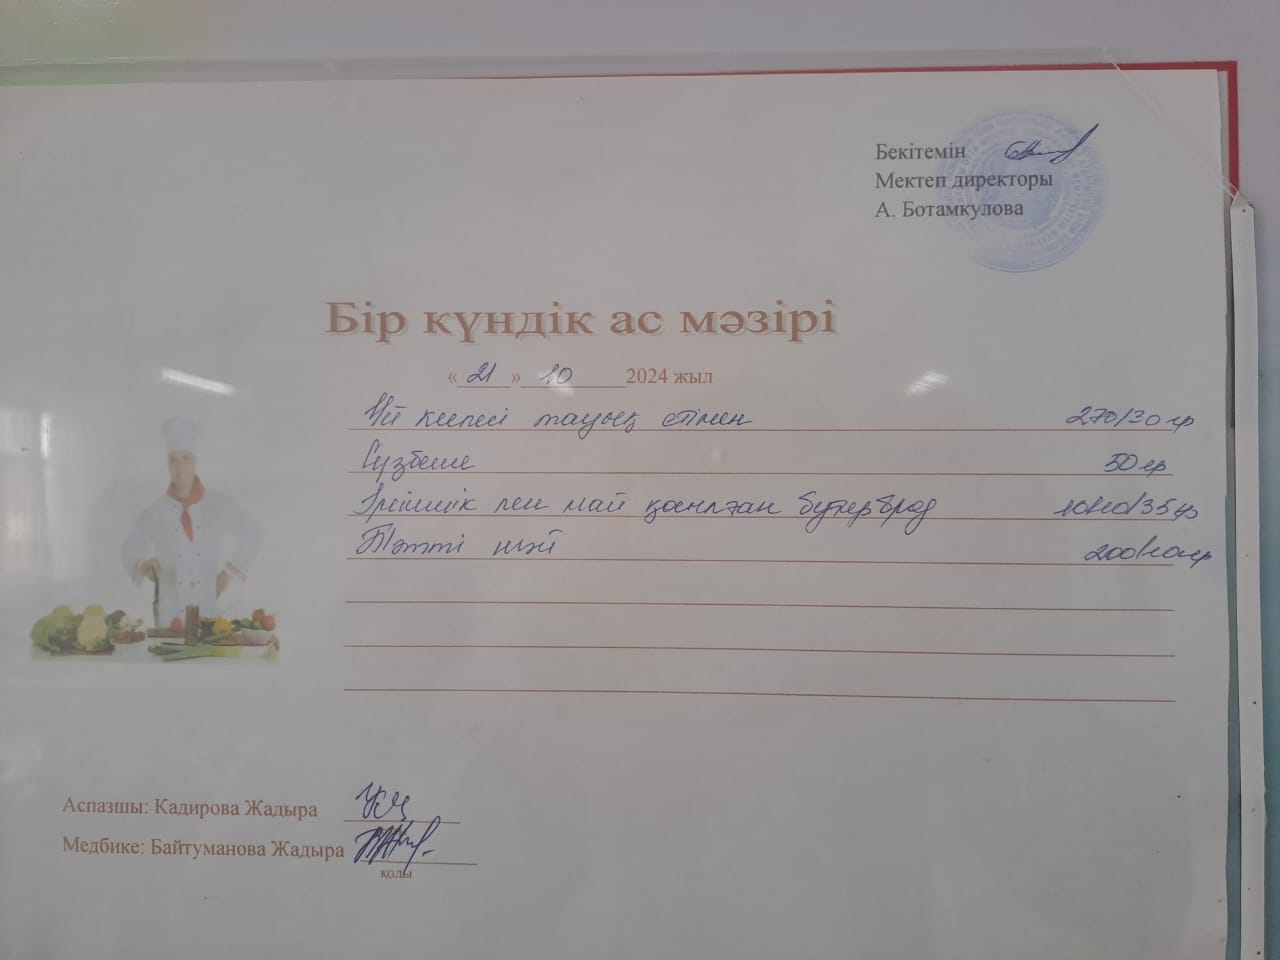 Бекітемін
Мектеп директоры
А. Ботамкулова
Бір күндік ас мәзірі
« 21 » 10 2024 жыл
Үй кеспесі тауық етімен 270/30 гр
Сүзбеше 50 гр
Ірімшік пен май қосылған бутерброд 10/10/35 гр
Тәтті шәй 200/10 гр
Аспазшы: Кадирова Жадыра
Медбике: Байтуманова Жадыра
қолы